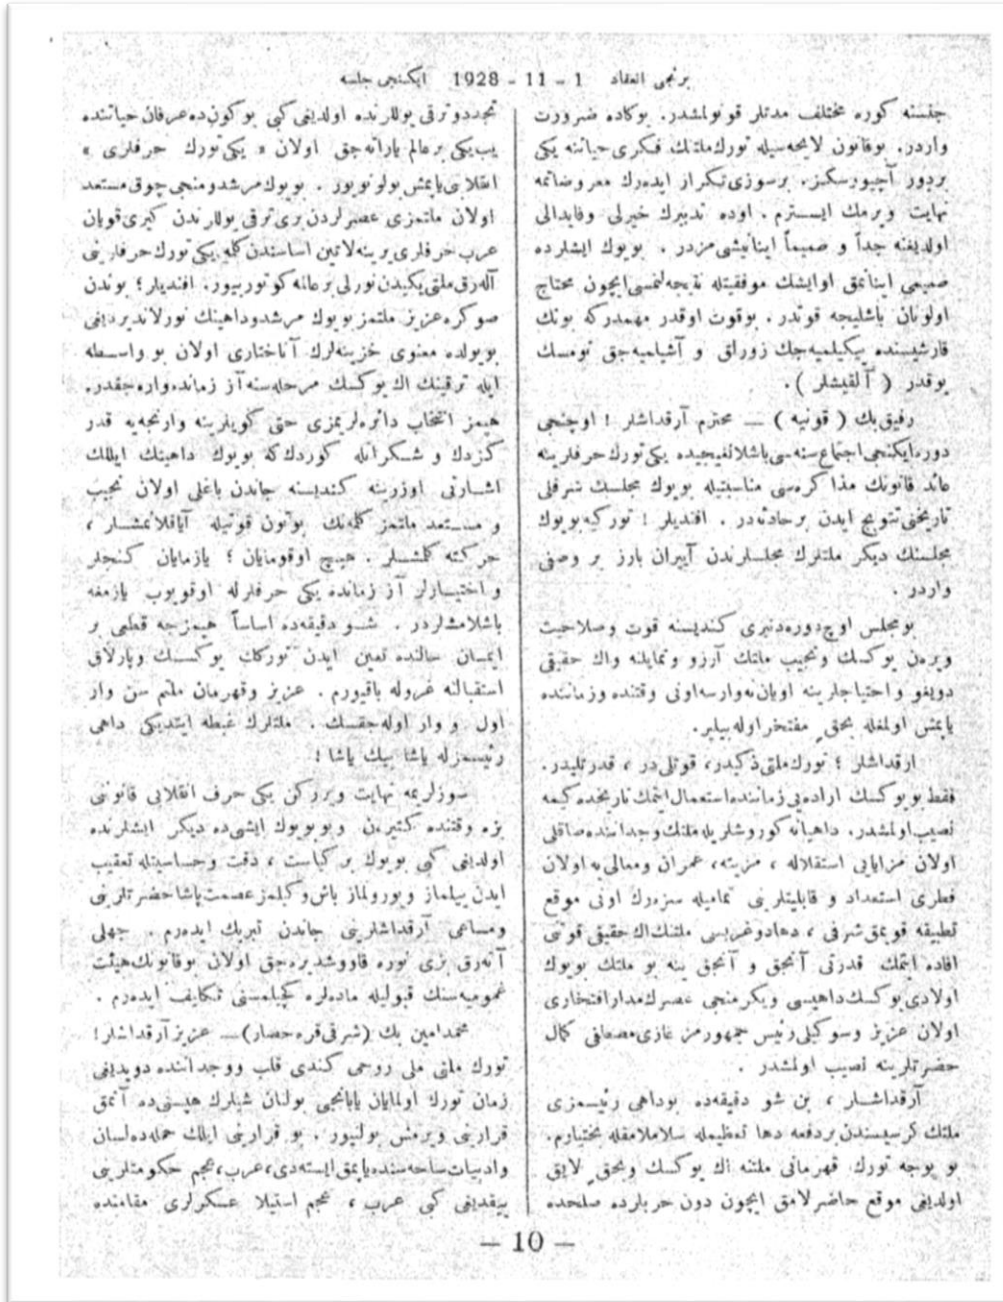 برنجی انعقاد 1 - 11 - 1928 ایكنجی جلسه
جلسنه كوره مختلف مدتلر قونولمشدر. بوكاده ضرورت
واردر. بوقانون لایحه‌سیله تورك ملتنك فكری حیاتنه یكی
بردور آچیورسكز. برسوزی تكرار ایده‌رك معروضاتمه
نهایت ویرمك ایسترم. اوده تدبیرك خیرلی وفایدالی
اولدیغنه جداً و صمیماً اینانیشی مزدر . بویوك ایشلرده
صمیمی اینانمق اوایشك موفقیتله نتیجه‌لنمسی ایچون محتاج
اولونان باشلیجه قوتدر. بوقوت اوقدر مهمدركه بونك
قارشیسنده ییكیلمیه‌جك زورلق و آشیلمیه‌جق نومسك
یوقدر ( آلقیشلر ).
رفیق بك ( قونیه ) — محترم آرقداشلر ! اوچنجی
دوره ایكنجی اجتماع سنه‌سی باشلانغیجیده یكی تورك حرفلرینه
عائد قانونك مذاكره‌سی مناسبتیله بویوك مجلسك شرفلی
تاریخنی تتویج ایدن برحادثه‌در . افندیلر ! توركیه بویوك
مجلسنك دیكر ملتلرك مجلسلرندن آییران بارز بر وصفی
واردر .
بومجلس اوچ دوره‌دنبری كندیسنه قوت وصلاحیت
ویره‌ن یوكسك ونجیب ملتك آرزو وتمایلنه واك حقیقی
دویغو واحتیاجلرینه اویان نه‌وارسه اونی وقتنده وزماننده
یاپمش اولمغله بحق مفتخر اوله‌بیلیر.
ارقداشلر ؛ تورك ملتی ذكیدر، قوتلی‌در ، قدرتلیدر.
فقط بو یوكسك اراده‌یی زماننده استعمال ایتمك تاریخده كیمه
نصیب اولمشدر. داهیانه كوروشلریله ملتك وجداننده صاقلی
اولان مزایایی استقلاله ، مزیته، عمران ومعالی‌یه اولان
فطری استعداد و قابلیتلرینی تمامیله سزه‌رك اونی موقع
تطبیقه قویمق شرفی ، دهادوغریسی ملتك اك حقیقی قوتنی
افاده ایتمك قدرتی آنجق و آنجق ینه بو ملتك بویوك
اولادی یوكسك داهیسی ویكرمنجی عصرك مدار افتخاری
اولان عزیز وسوكیلی رئیس جمهورمز غازی مصطفی كمال
حضرتلرینه نصیب اولمشدر .
آرقداشلر ، بن شو دقیقه‌ده بوداهی رئیسمزی
ملتك كرسیسندن بردفعه دها تعظیمله سلاملامقله بختیارم.
بو یوجه تورك قهرمانی ملتنه اك یوكسك وبحق لایق
اولدیغی موقع حاضرلامق ایچون دون حربلرده صلحده
تجدد وترقی یوللرنده اولدیغی كبی بوكون‌ده عرفان حیاتنده
یب‌یكی برعالم یاراته‌جق اولان « یكی تورك حرفلری »
انقلابنی یاپمش بولونویور . بویوك مرشد ومنجی چوق مستعد
اولان ملتمزی عصرلردن بری ترقی یوللرندن كیری قویان
عرب حرفلری یرینه لاتین اساسندن كلمه یكی تورك حرفلرینی
آله‌رق ملتی یكیدن نورلی برعالمه كوتوریيور. افندیلر؛ بوندن
صوكره عزیز ملتمز بویوك مرشد وداهینك نورلاندیردیغی
بویولده معنوی خزینه‌لرك آناختاری اولان بو واسطه
ایله ترقینك اك یوكسك مرحله‌سنه آز زمانده واره‌جقدر.
هپمز انتخاب دائره‌لریمزی حتی كویلرینه وارنجه‌یه قدر
كزدك و شكرانله كوردك كه بویوك داهینك ایللك
اشارتی اوزرینه كندیسنه جاندن باغلی اولان نجیب
و مستعد ملتمز كلمه‌نك بوتون قوتیله آیاقلانمشلر ،
حركته كلمشلر . هیچ اوقومایان ؛ یازمایان كنجلر
و اختیارلر آز زمانده یكی حرفلرله اوقویوب یازمغه
باشلامشلردر . شو دقیقه‌ده اساساً هپمزجه قطعی بر
ایمان حالنده تعین ایدن توركك یوكسك وپارلاق
استقبالنه غرورله باقیورم . عزیز وقهرمان ملتم سن وار
اول و وار اوله‌جقسك . ملتلرك غبطه ایتدیكی داهی
رئیسمزله یاشا بیك یاشا !
سوزلریمه نهایت ویرركن یكی حرف انقلابی قانونی
بزه وقتنده كتیره‌ن وبویویوك ایشی‌ده دیكر ایشلرنده
اولدیغی كبی بویوك بر كیاست ، دقت وحساسیتله تعقیب
ایدن ییلماز ویورولماز باش وكیلمز عصمت پاشا حضرتلرینی
ومساعی آرقداشلرینی جاندن تبریك ایده‌رم . جهلی
آته‌رق بزی نوره قاووشدیره‌جق اولان بوقانونك هیئت
عمومیه‌سنك قبولیله ماده‌لره كچیلمسنی تكلیف ایده‌رم .
محمد امین بك (شرقی قره حصار)— عزیز آرقداشلر!
تورك ملتی ملی روحی كندی قلب ووجداننده دویدیغی
زمان تورك اولمایان یابانجی بولنان شیلرك هپسنی‌ده آتمق
قرارینی ویرمش بولنیور . بو قرارینی ایلك حمله‌ده لسان
وادبیات ساحه‌سنده یاپمق ایسته‌دی، عرب، عجم حكومتلرینی
ییقدیغی كبی عرب ، عجم استیلا عسكرلری مقامنده
— 10 —